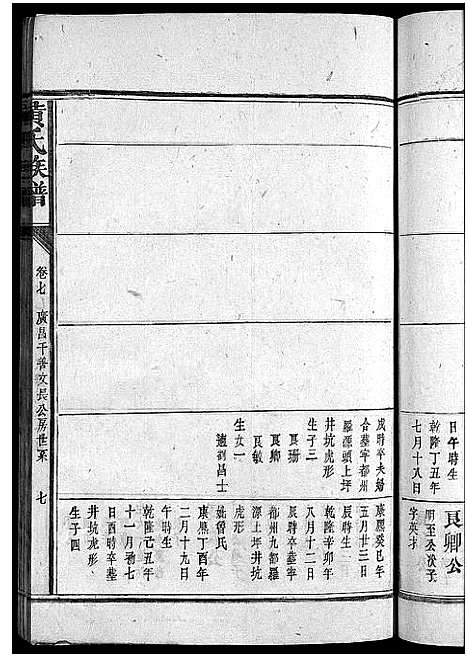 日午時生
乾隆丁丑年
七月十八日
良卿公
明至公次子
字英才
戌時卒夫婦
合墓寧都州
羅源頭上坪
井坑虎形
生子三
良珊
良卿
良敏
生女一
適劉昌士
康熙癸巳年
五月廿三日
辰時生
乾隆辛卯年
八月十二日
辰時卒墓寧
都州九都羅
源上坪井坑
虎形
妣曾氏
康熙丁酉年
二月十九日
午時生
乾隆己丑年
十一月初七
日酉時卒墓
井坑虎形
生子四
黃氏族譜
卷七
廣昌千善文長公房世系
七